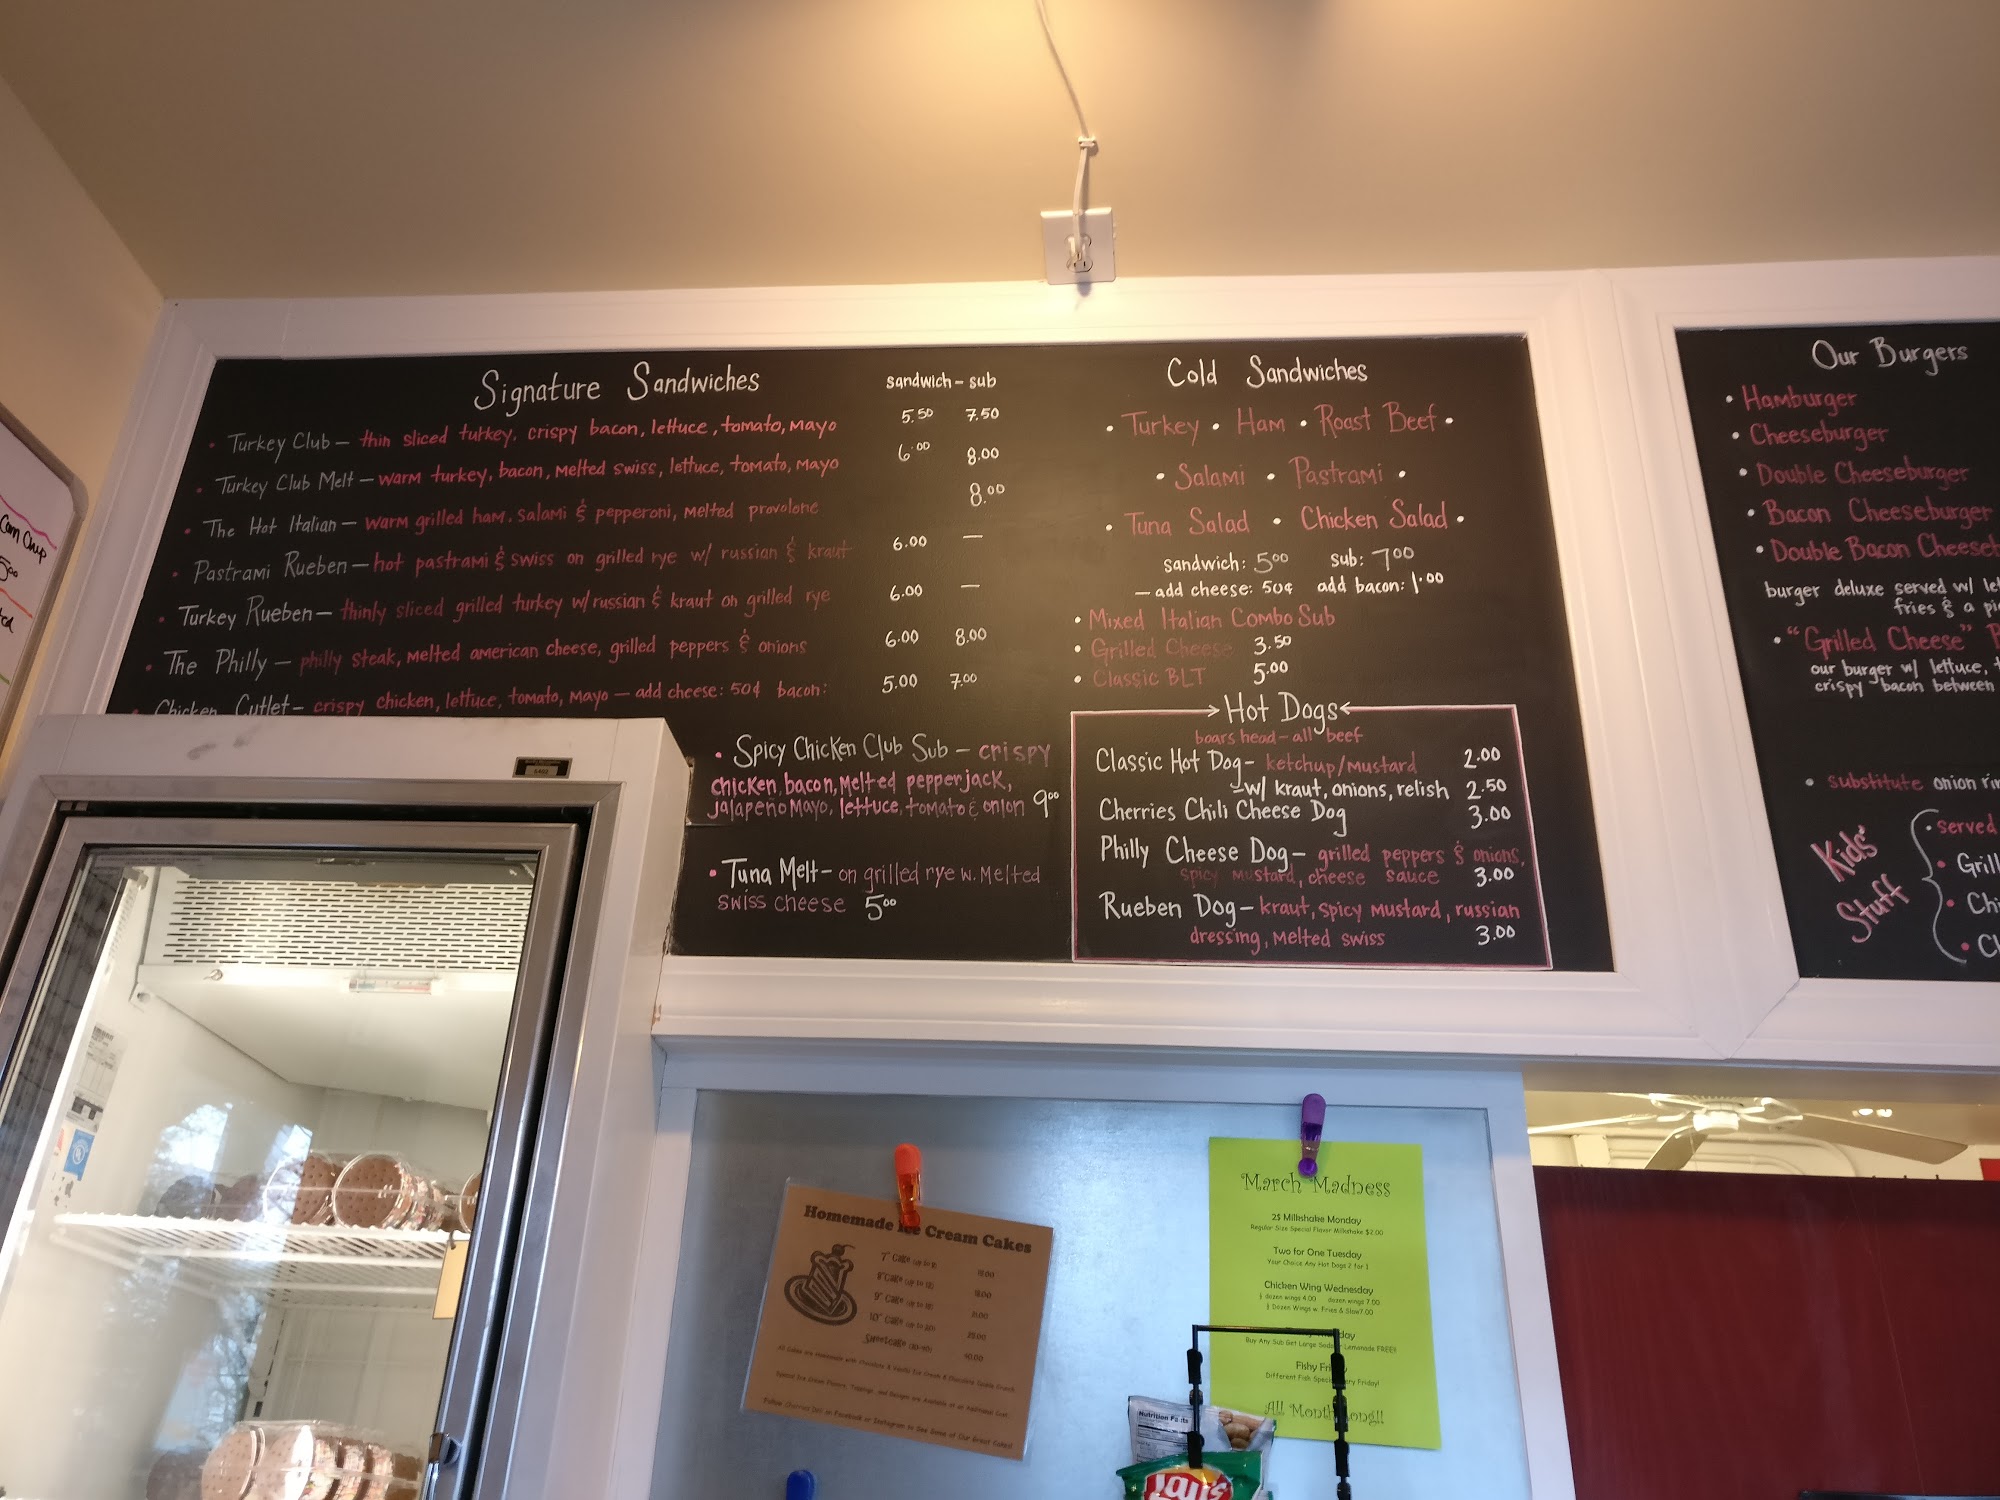 Signature Sandwiches
sandwich - sub
• Turkey Club — thin sliced turkey, crispy bacon, lettuce, tomato, mayo 5.50 7.50
• Turkey Club Melt — warm turkey, bacon, melted swiss, lettuce, tomato, mayo 6.00 8.00
• The Hot Italian — warm grilled ham, salami & pepperoni, melted provolone 8.00
• Pastrami Rueben — hot pastrami & swiss on grilled rye w/ russian & kraut 6.00 —
• Turkey Rueben — thinly sliced grilled turkey w/ russian & kraut on grilled rye 6.00 —
• The Philly — philly steak, melted american cheese, grilled peppers & onions 6.00 8.00
• Chicken Cutlet — crispy chicken, lettuce, tomato, mayo — add cheese: 50¢ bacon: 5.00 7.00
• Spicy Chicken Club Sub — crispy
chicken, bacon, melted pepperjack,
jalapeño mayo, lettuce, tomato & onion 9.00
• Tuna Melt — on grilled rye w. melted
swiss cheese 5.00
Cold Sandwiches
• Turkey • Ham • Roast Beef •
• Salami • Pastrami •
• Tuna Salad • Chicken Salad •
sandwich: 5.00 sub: 7.00
— add cheese: 50¢ add bacon: 1.00
• Mixed Italian Combo Sub
• Grilled Cheese 3.50
• Classic BLT 5.00
Hot Dogs
boars head - all beef
Classic Hot Dog — ketchup/mustard 2.00
— w/ kraut, onions, relish 2.50
Cherries Chili Cheese Dog 3.00
Philly Cheese Dog — grilled peppers & onions,
spicy mustard, cheese sauce 3.00
Rueben Dog — kraut, spicy mustard, russian
dressing, melted swiss 3.00
Our Burgers
• Hamburger
• Cheeseburger
• Double Cheeseburger
• Bacon Cheeseburger
• Double Bacon Cheeseb
burger deluxe served w/
fries & a
• "Grilled Cheese"
our burger w/ lettuce,
crispy bacon between
• substitute onion
Kids'
Stuff
• served
Homemade Ice Cream Cakes
7" Cake
8" Cake
9" Cake
10" Cake
March Madness
2$ Milkshake Monday
Regular Size Special Flavor Milkshake $2.00
Two for One Tuesday
Your Choice Any Hot Dogs 2 for 1
Chicken Wing Wednesday
½ dozen wings 4.00 dozen wings 7.00
½ Dozen Wings w. Fries & Slaw 7.00
Buy Any Sub Get Large Soda Lemonade FREE!!
Fishy
Different Fish Friday!
All Month Long!!
Nutrition Facts
Lay's